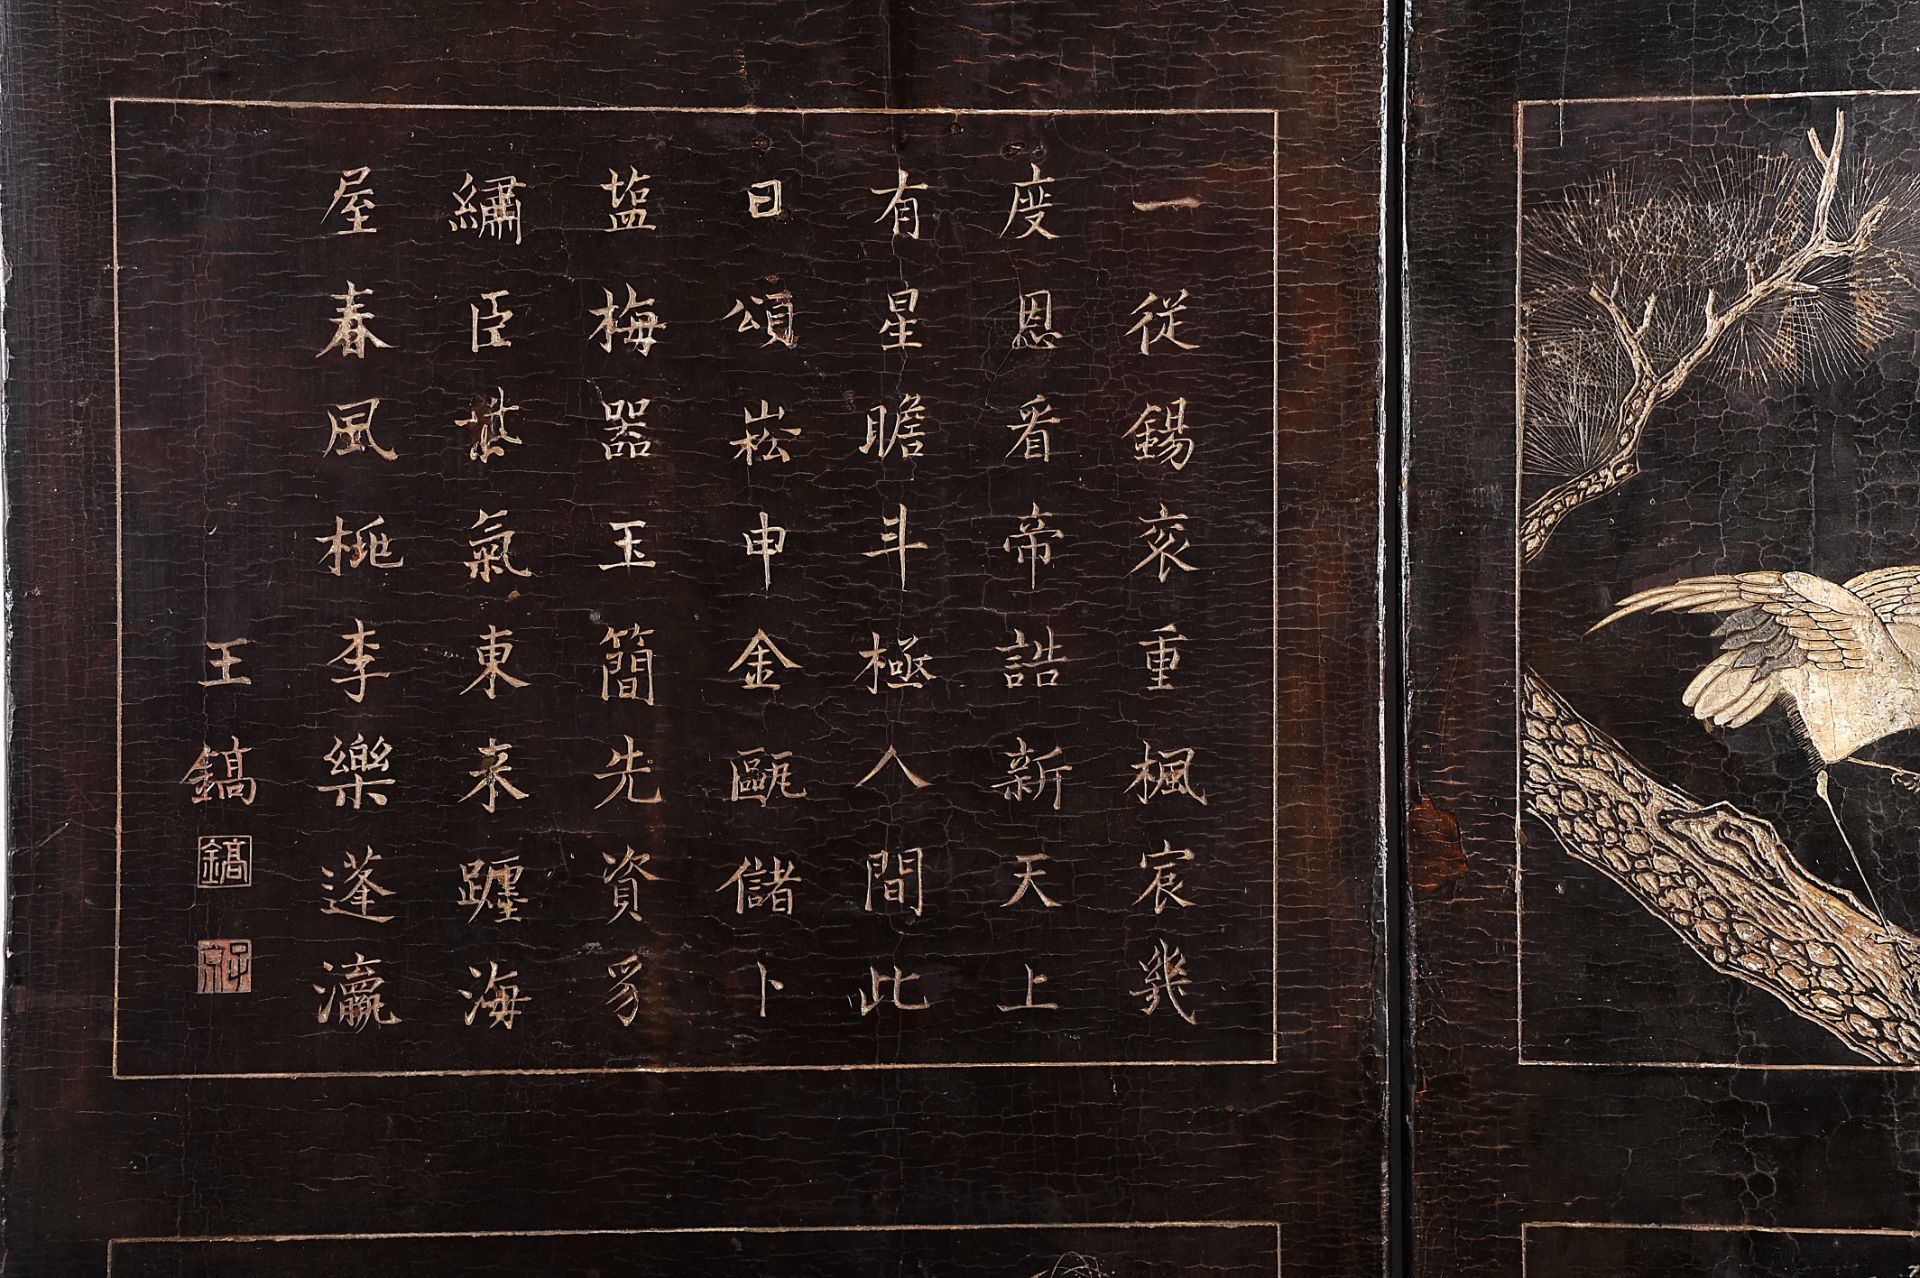 一従錫衮重楓宸幾
度恩看帝誥新天上
有星瞻斗極人間此
日頌崧申金甌儲卜
塩梅器玉簡先資豸
繡臣紫氣東来躔海
屋春風桃李樂蓬瀛
王鎬
鎬